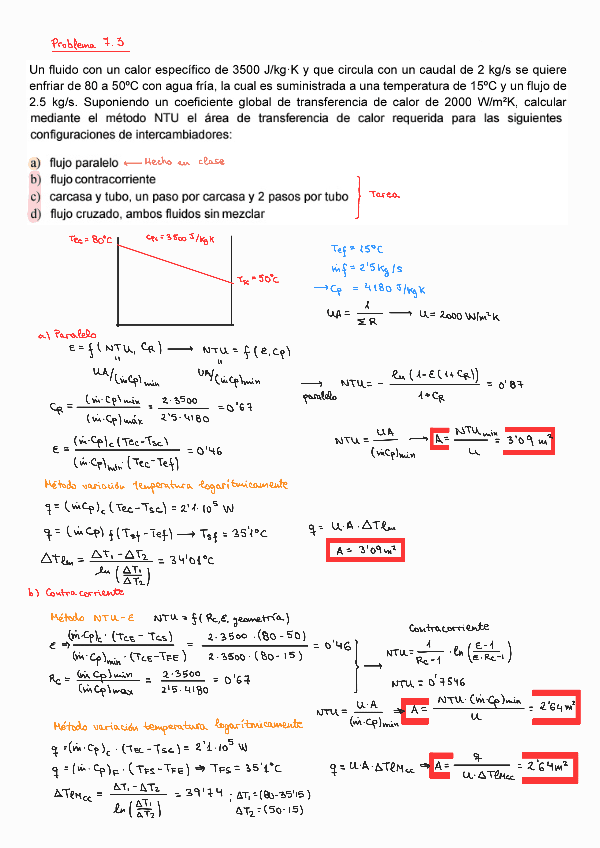 Problema 7.3
Un fluido con un calor específico de 3500 J/kg·K y que circula con un caudal de 2 kg/s se quiere
enfriar de 80 a 50ºC con agua fría, la cual es suministrada a una temperatura de 15ºC y un flujo de
2.5 kg/s. Suponiendo un coeficiente global de transferencia de calor de 2000 W/m²K, calcular
mediante el método NTU el área de transferencia de calor requerida para las siguientes
configuraciones de intercambiadores:
a) flujo paralelo ← Hecho en clase
b) flujo contracorriente
c) carcasa y tubo, un paso por carcasa y 2 pasos por tubo
d) flujo cruzado, ambos fluidos sin mezclar
Tarea
Tec = 80ºC cpc = 3500 J/kg K
Tsc = 50ºC
Tef = 15ºC
ṁf = 2'5 kg/s
→ Cp = 4180 J/kg K
UA = 1/ΣR → U = 2000 W/m²K
a) Paralelo
ε = f(NTU, CR) → NTU = f(ε, Cp)
UA/(ṁCp)min UA/(ṁCp)min
CR = (ṁ·Cp)min/(ṁ·Cp)máx = 2·3500/2'5·4180 = 0'67
→ paralelo NTU = - ln(1-ε(1+CR))/1+CR = 0'87
ε = (ṁ·Cp)c (Tec-Tsc)/(ṁ·Cp)mín (Tec-Tef) = 0'46
NTU = UA/(ṁCp)min → A = NTU min/U = 3'09 m²
Método variación temperatura logarítmicamente
q = (ṁ·Cp)c (Tec-Tsc) = 2'1·10⁵ W
q = (ṁCp)f (Tsf-Tef) → Tsf = 35'1ºC
q = U·A·ΔTlm
A = 3'09 m²
ΔTlm = ΔT1-ΔT2/ln(ΔT1/ΔT2) = 34'01ºC
b) Contracorriente
Método NTU-ε NTU = f(Rc, ε, geometría)
ε ⇒ (ṁ·Cp)c·(TCE-TCS)/(ṁ·Cp)min·(TCE-TFE) = 2·3500·(80-50)/2·3500·(80-15) = 0'46
Rc = (ṁCp)min/(ṁCp)max = 2·3500/2'5·4180 = 0'67
Contracorriente
NTU = 1/Rc-1 · ln(ε-1/ε·Rc-1)
NTU = 0'7546
NTU = U·A/(ṁ·Cp)min ⇒ A = NTU·(ṁ·Cp)min/U = 2'64 m²
Método variación temperatura logarítmicamente
q = (ṁ·Cp)c·(Tec-Tsc) = 2'1·10⁵ W
q = (ṁ·Cp)F·(TFS-TFE) ⇒ TFS = 35'1ºC
q = U·A·ΔTlmcc ⇒ A = q/U·ΔTlmcc = 2'64 m²
ΔTlmcc = ΔT1-ΔT2/ln(ΔT1/ΔT2) = 39'74 ; ΔT1 = (80-35'15)
ΔT2 = (50-15)